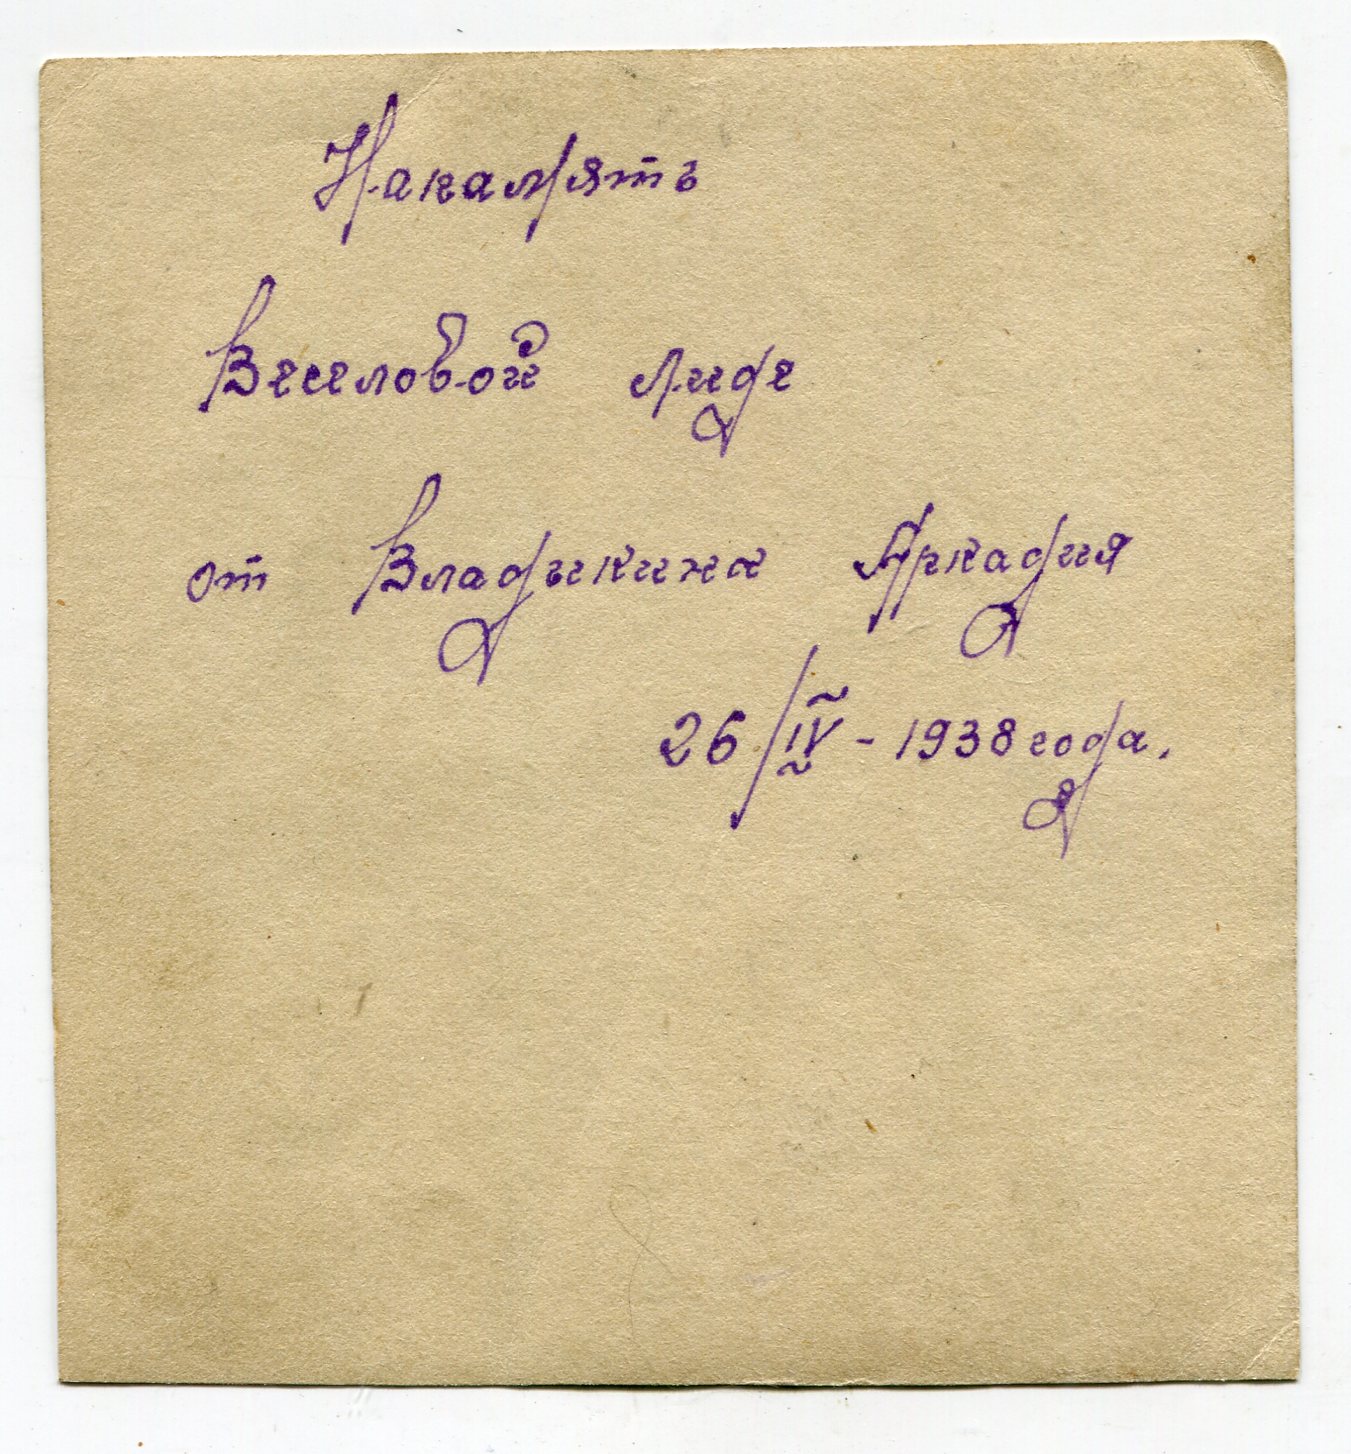 Накамять
Веселовой Лиде
от Владыкина Аркадия
26/IV - 1938 года.